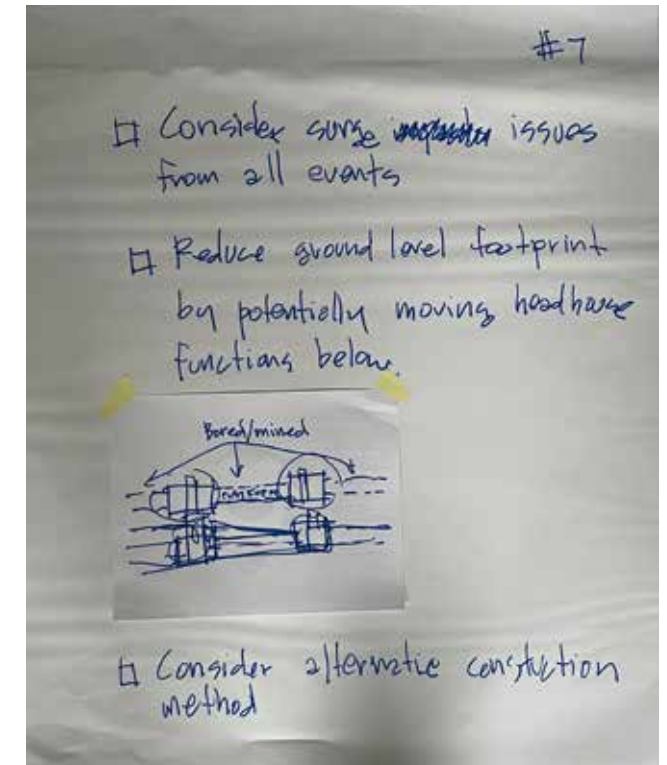 #7
Consider surge issues
from all events
Reduce ground level footprint
by potentially moving headhouse
functions below.
Bored/mined
Consider alternative constuction
method